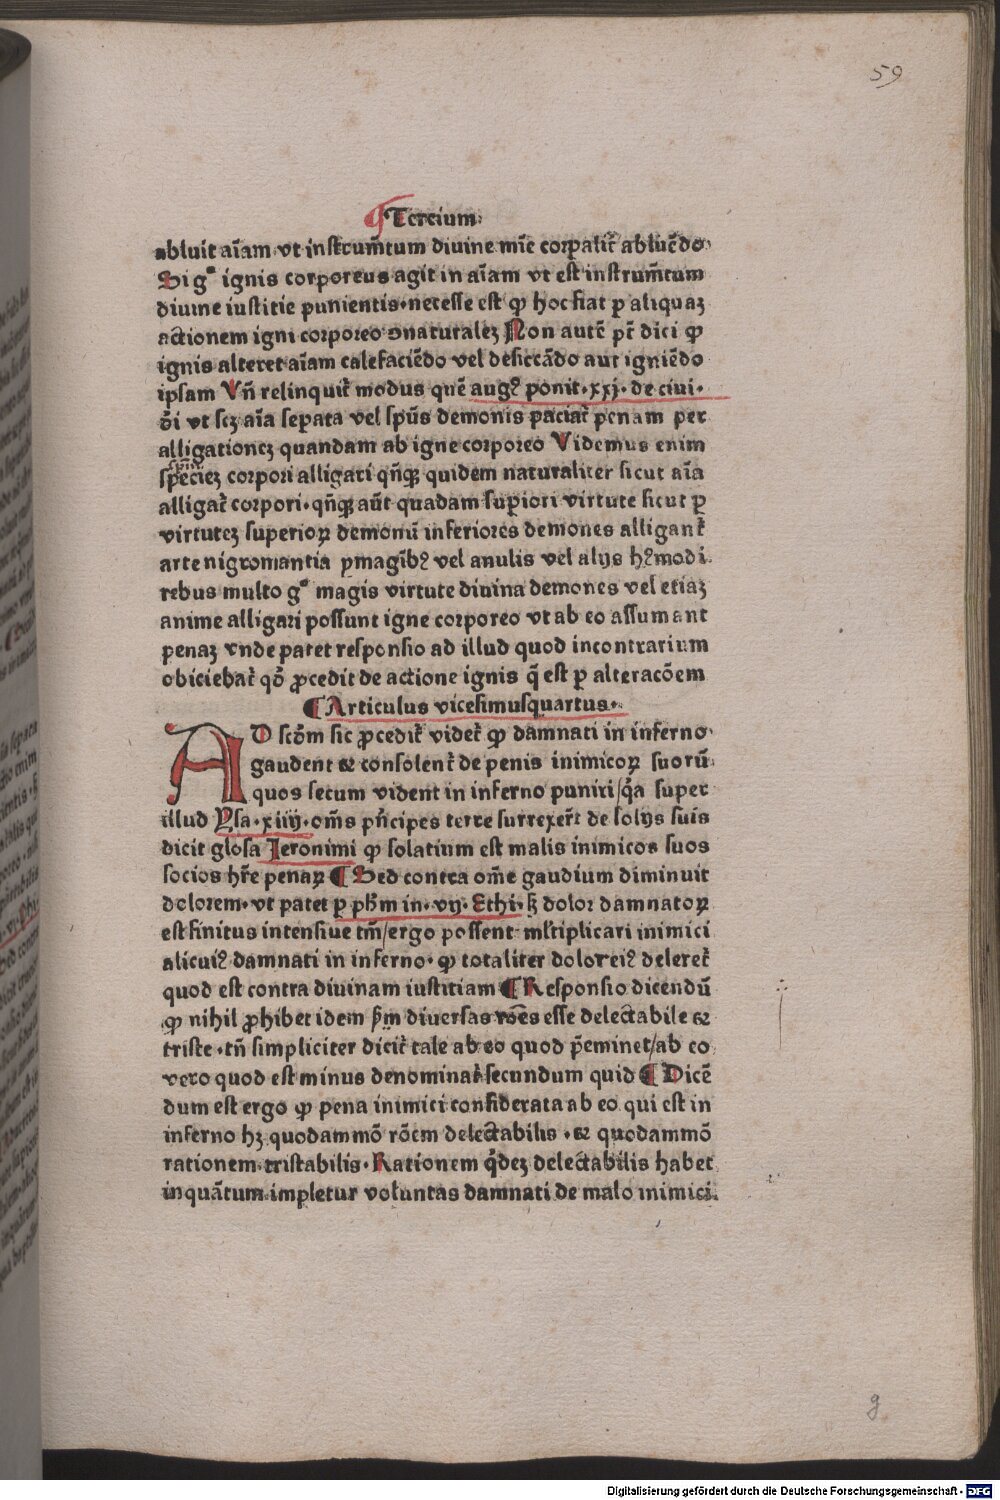 59
¶Tercium·
abluit aīam·vt instrum̄tum diuine mīe corpalit̄ abluēdo
Si gᵃ ignis corporeus agit in aīam vt est instrum̄tum
diuine iustitie punientis·necesse est ꝙ hoc fiat ꝑ aliquaꝫ
actionem igni corporeo ↄnaturaleꝫ Non autē pt̄ dici ꝙ
ignis alteret aīam calefaciēdo vel desiccādo aut igniēdo
ipsam Vn̄ relinquit̄ modus quē augꝰ ponit·xxj·de ciui·
ꝺi vt scꝫ aīa seꝑata vel spūs demonis paciat̄ penam per
alligationeꝫ quandam ab igne corporeo Videmus enim
specieꝫ corpori alligari qn̄qꝫ quidem naturaliter sicut aīa
alligat̄ corpori·qn̄qꝫ aūt quadam suꝑiori virtute sicut ꝑ
virtuteꝫ superioꝝ demonū inferiores demones alligant̄
arte nigromantia ꝑmagībꝰ vel anulis vel alijs hꝰmodi
rebus multo gᵃ magis virtute diuina demones vel etiaꝫ
anime alligari possunt igne corporeo vt ab eo assumant
penaꝫ vnde patet responsio ad illud quod incontrarium
obiciebat̄ qō ꝓcedit de actione ignis q̄ est ꝑ alteracōem
¶Articulus vicesimusquartus·
AD scōm sic ꝓcedit̄ videt̄ ꝙ damnati in inferno
gaudent ⁊ consolent̄ de penis inimicoꝝ suorū
quos secum vident in inferno puniri/q̄a super
illud Psa·xiiij·om̄s pn̄cipes terre surrexert̄ de solijs suis
dicit glosa Ieronimi ꝙ solatium est malis inimicos suos
socios hr̄e penaꝝ ¶Sed contra om̄e gaudium diminuit
dolorem·vt patet ꝑ ph̄m in·vij·Ethi·ꝫ dolor damnatoꝝ
est finitus intensiue tm̄/ergo possent ml̄tiplicari inimici
alicuiꝰ damnati in inferno·ꝙ totaliter dolor eiꝰ deleret̄
quod est contra diuinam iustitiam ¶Responsio dicendū
ꝙ nihil ꝓhibet idem ẜm diuersas rōes esse delectabile ⁊
triste·tn̄ simpliciter dicit̄ tale ab eo quod p̄eminet/ab eo
vero quod est minus denominat̄ secundum quid ¶Dicē
dum est ergo ꝙ pena inimici considerata ab eo qui est in
inferno hꝫ quodammō rōem delectabilis·⁊ quodammō
rationem tristabilis·Rationem q̄deꝫ delectabilis habet
inquātum impletur voluntas damnati de malo inimici.
g
Digitalisierung gefördert durch die Deutsche Forschungsgemeinschaft · DFG